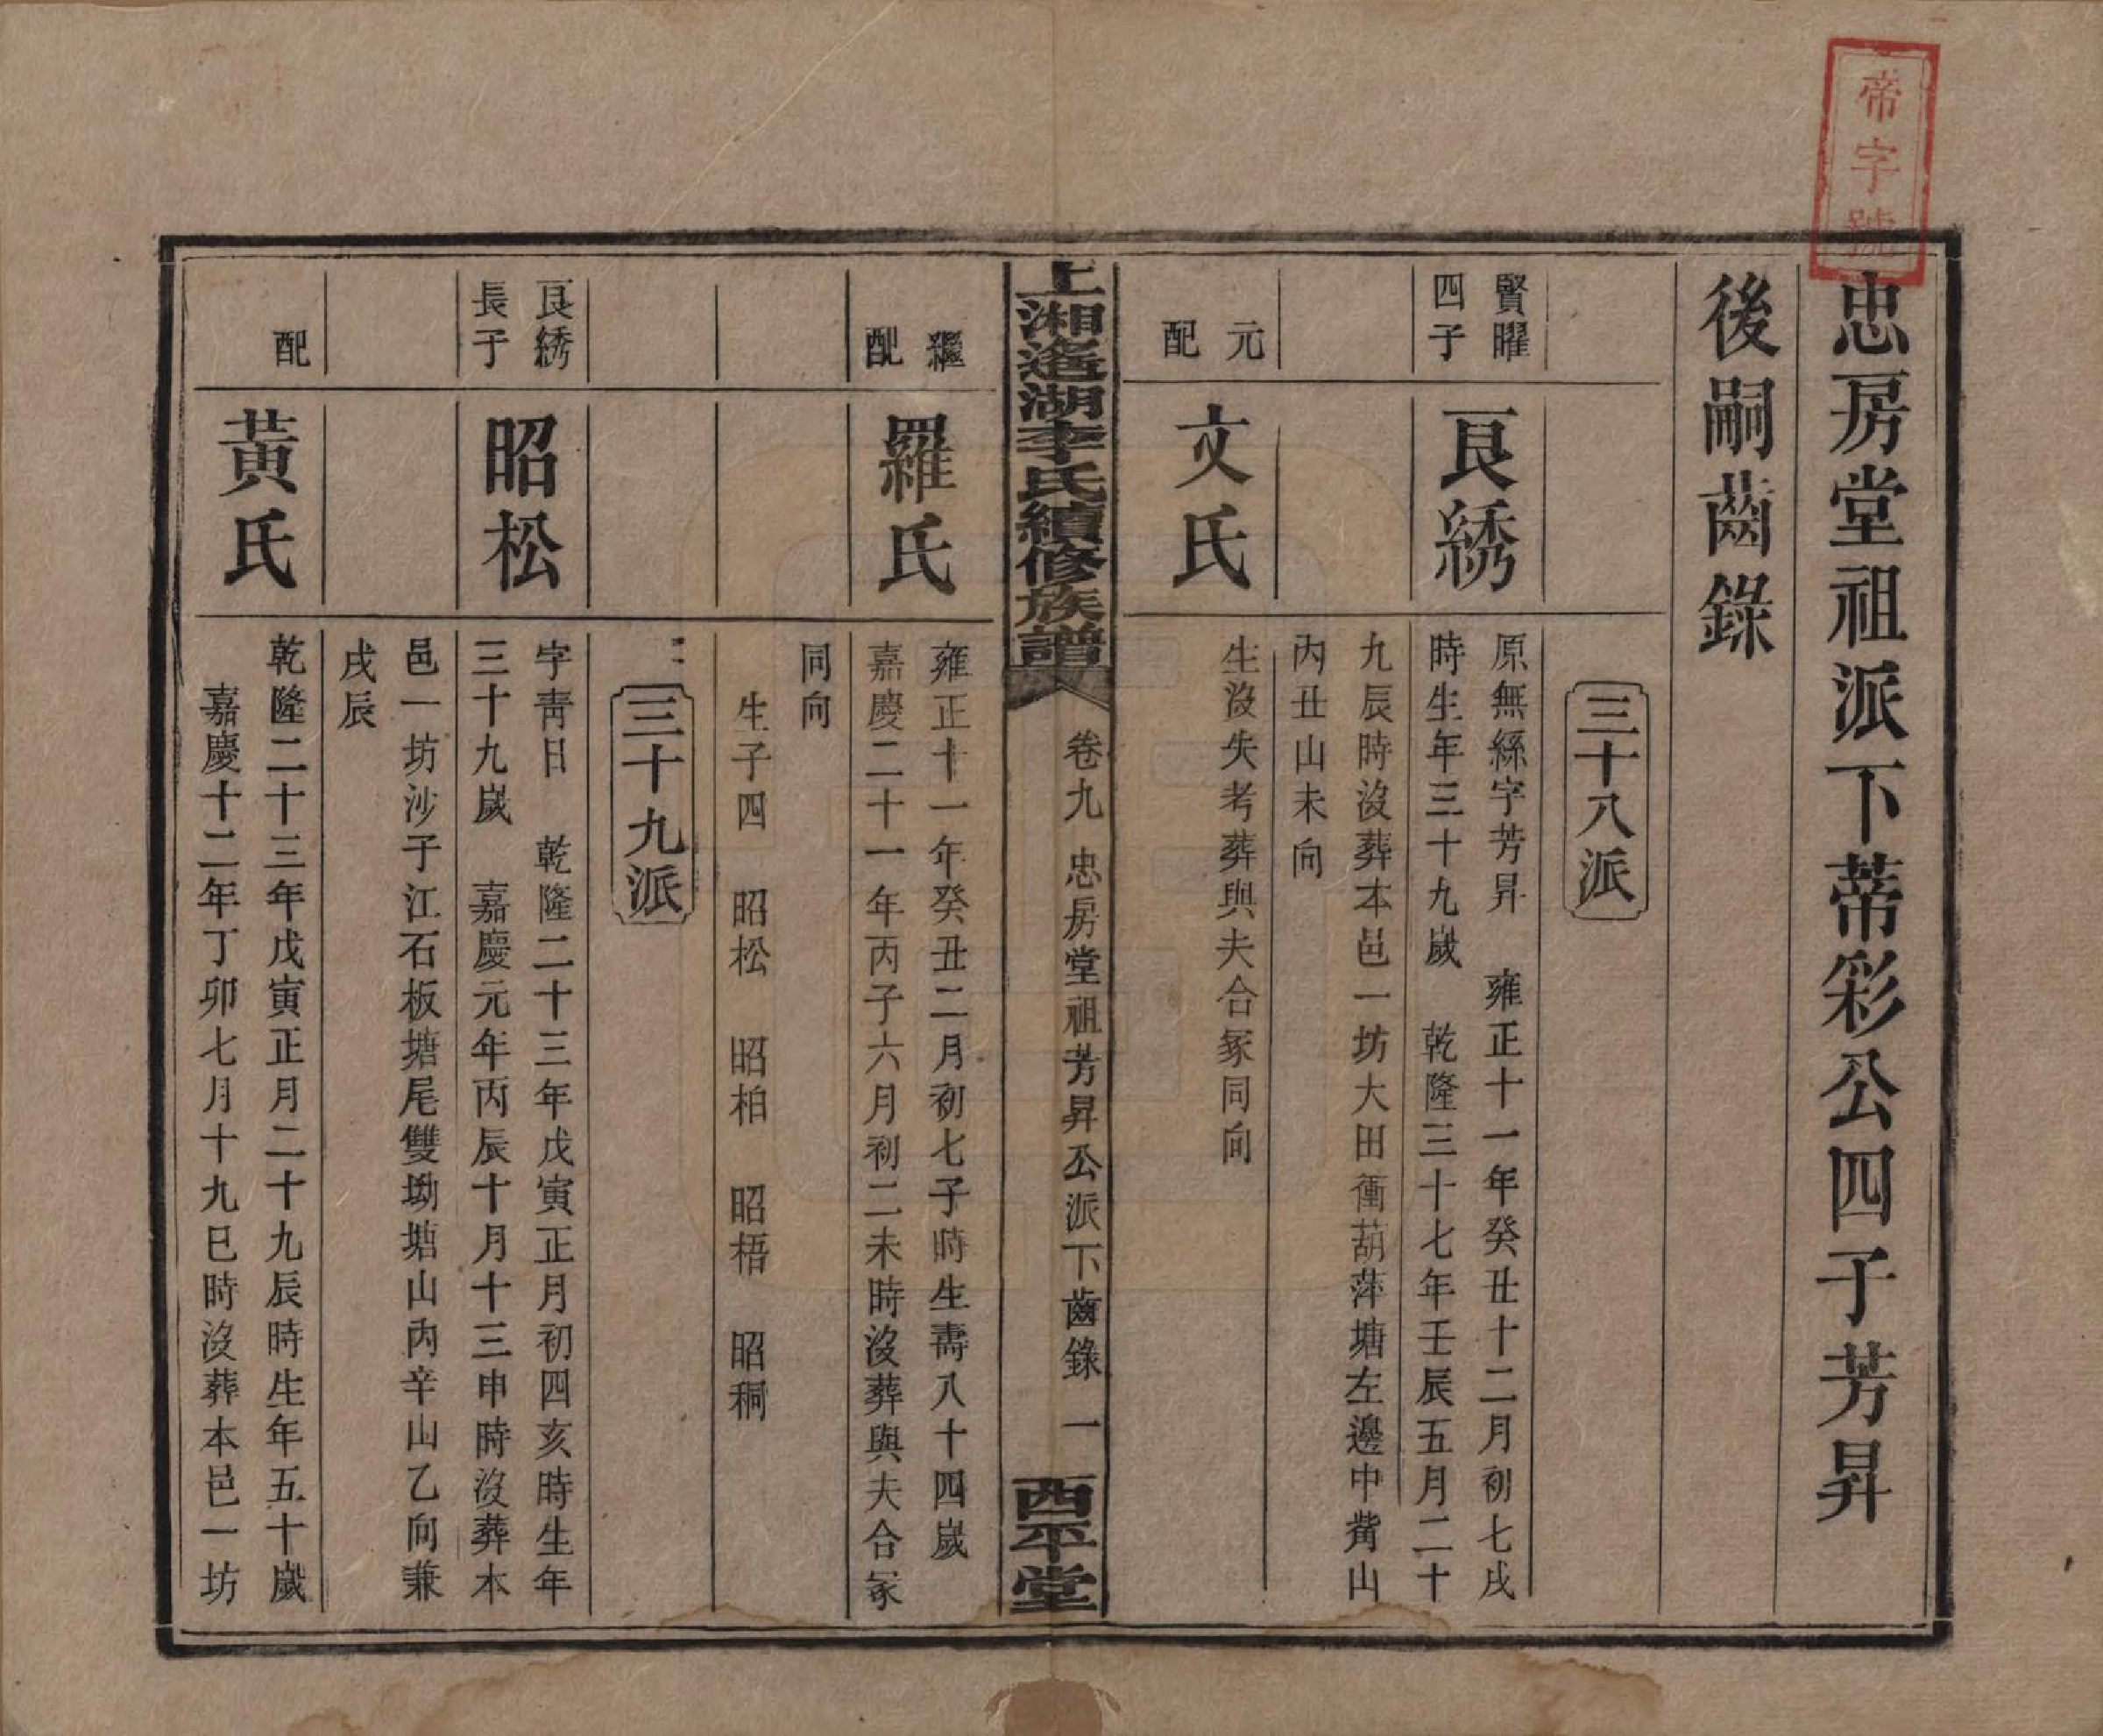 帝字號
忠房堂祖派下蒂彩公四子芳昇
後嗣齒錄
三十八派
賢曜
四子
良綉
原無絲字芳昇　雍正十一年癸丑十二月初七戌
時生年三十九歲　乾隆三十七年壬辰五月二十
九辰時沒葬本邑一坊大田衝葫萍塘左邊中嘴山
內丑山未向
元
配
文氏
生沒失考葬與夫合冢同向
上湘遙湖李氏續修族譜
卷九　忠房堂祖芳昇公派下齒錄　一
西平堂
繼
配
羅氏
雍正十一年癸丑二月初七子時生壽八十四歲
嘉慶二十一年丙子六月初二未時沒葬與夫合冢
同向
生子四　昭松　昭柏　昭梧　昭秱
三十九派
良綉
長子
昭松
字靑日　乾隆二十三年戊寅正月初四亥時生年
三十九歲　嘉慶元年丙辰十月十三申時沒葬本
邑一坊沙子江石板塘尾雙坳塘山內辛山乙向兼
戌辰
配
黃氏
乾隆二十三年戊寅正月二十九辰時生年五十歲
嘉慶十二年丁卯七月十九巳時沒葬本邑一坊